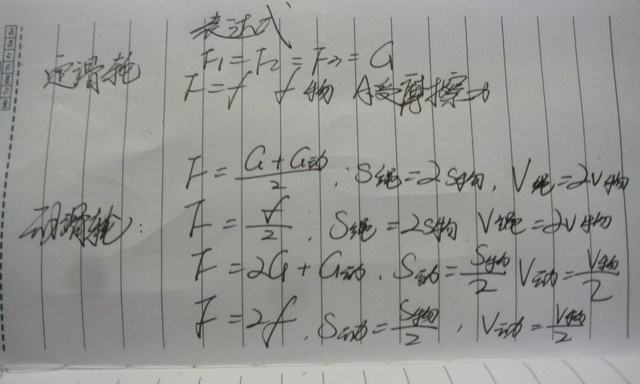 表达式
定滑轮 F₁=F₂=F₃=G
F=f f物 A受摩擦力
F=(G+G动)/2 . S绳=2S物 . V绳=2V物
动滑轮: F=f/2 . S绳=2S物 V绳=2V物
F=2G+G动 . S动=S物/2 V动=V物/2
F=2f . S动=S物/2 . V动=V物/2